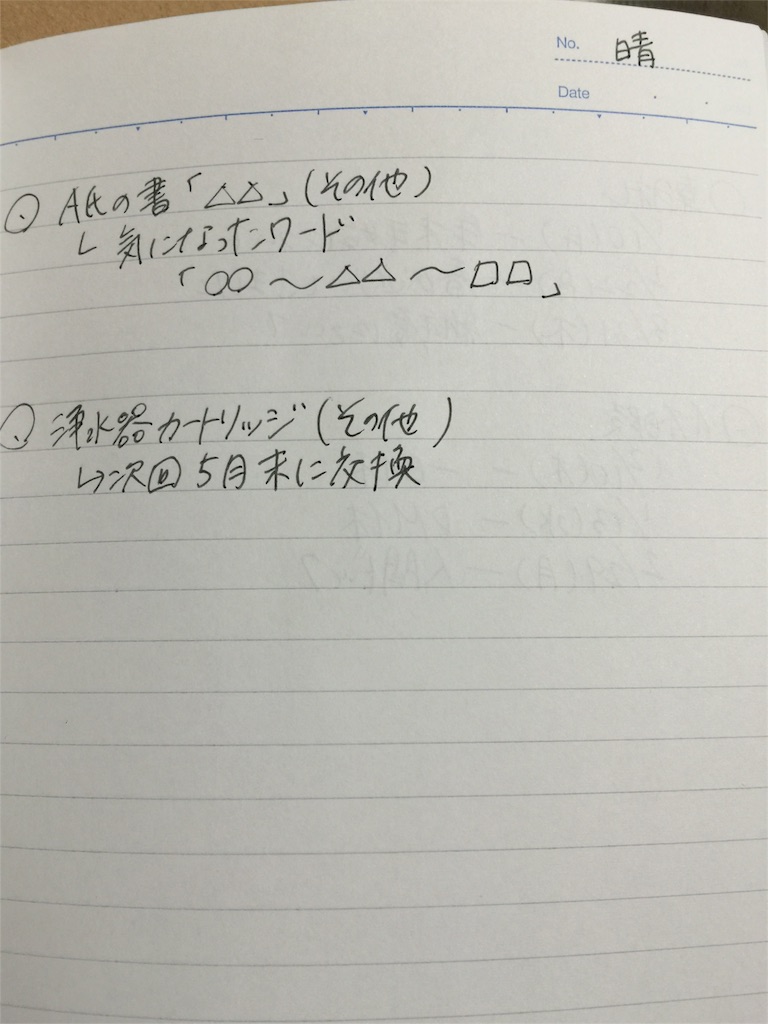 No. 晴
Date
⊙ A氏の書「△△」(その他)
└ 気になったワード
「○○ ～ △△ ～ □□」
⊙ 浄水器カートリッジ(その他)
↳次回 5月末に交換